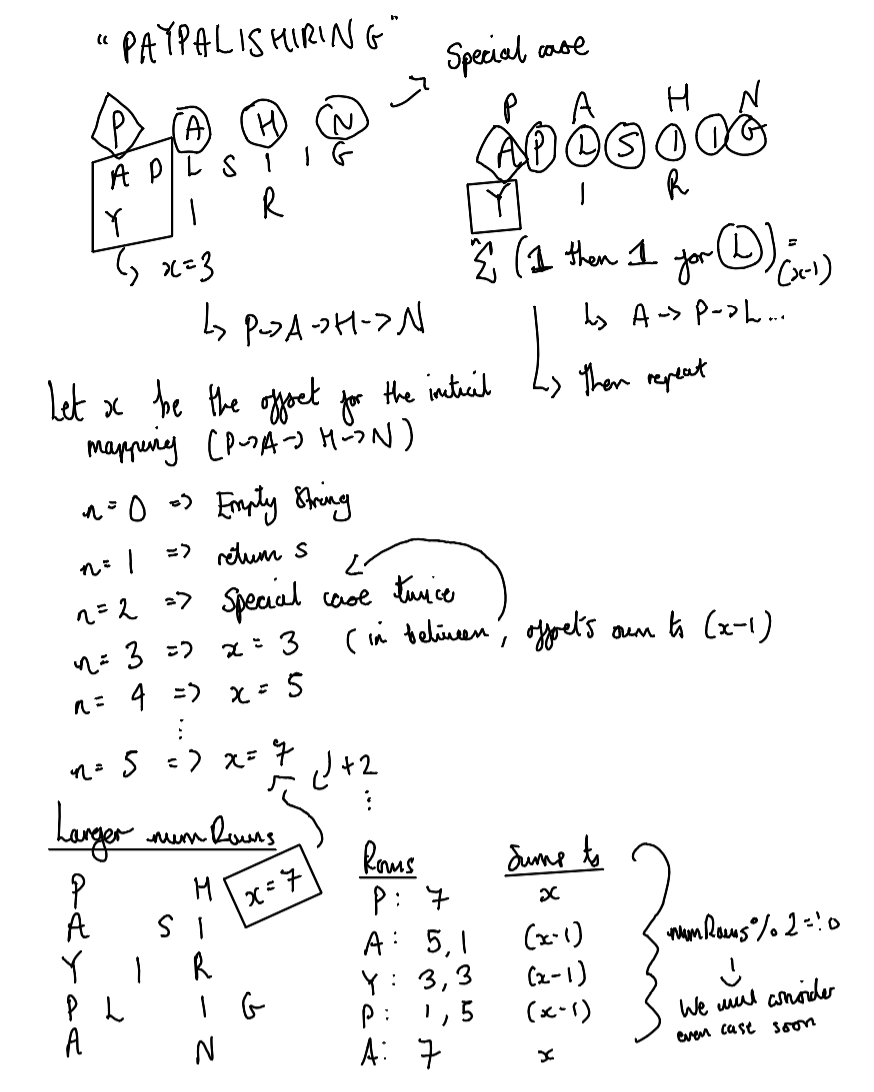 "PAYPALISHIRING"
P A H N
A P L S I I G
Y I R
↳ x=3
↳ P->A->H->N
Special case
P A H N
A P L S I I G
Y I R
n
Σ (1 then 1 for L) = (x-1)
↳ A -> P->L...
↳ then repeat
Let x be the offset for the initial
mapping (P->A-> H->N)
n=0 => Empty String
n=1 => return s
n=2 => Special case twice
(in between, offsets sum to (x-1)
n=3 => x=3
n=4 => x=5
⋮
n=5 => x=7
+2
⋮
Larger numRows
P H
A S I
Y I R
P L I G
A N
x=7
Rows Sums to
P: 7 x
A: 5,1 (x-1)
Y: 3,3 (x-1)
P: 1,5 (x-1)
A: 7 x
numRows%2=!0
↓
We must consider
even case soon